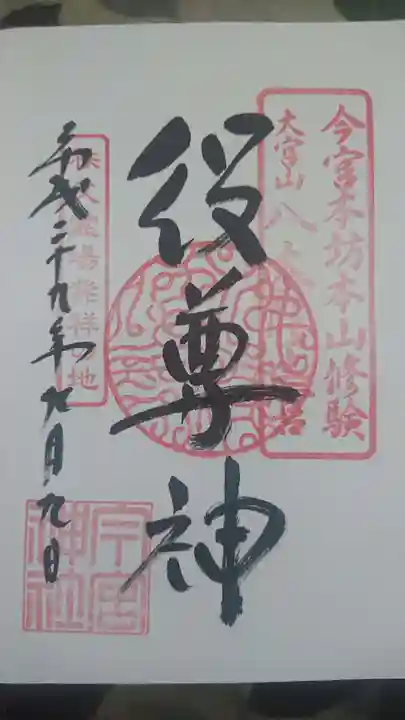 今宮本坊本山修験
大宮山八大
役尊神
霊場発祥の地
平成二十九年九月九日
今宮
神社